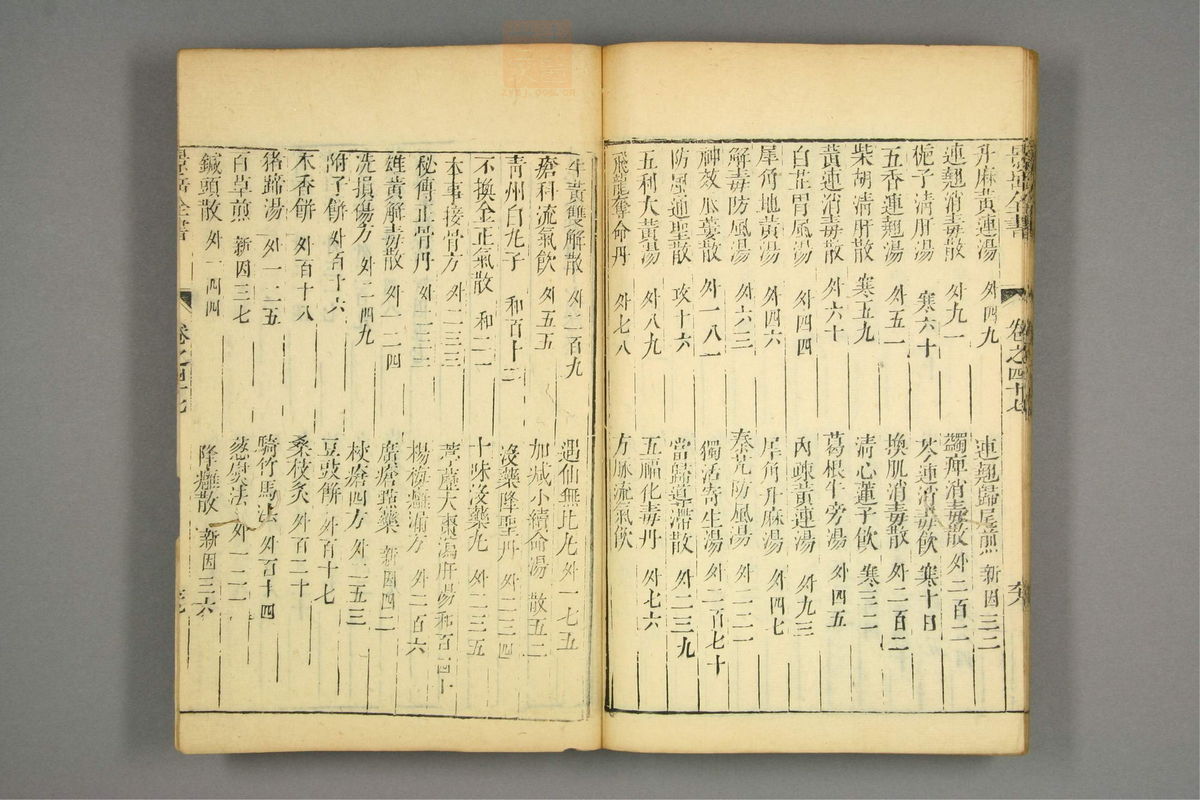 景岳全書 卷之四十七
升麻黃連湯 外四九 連翹歸尾煎 新因三二
連翹消毒散 外九一 蠲痺消毒散 外二百二
梔子清肝湯 寒六十 芩連消毒飲 寒十
五香連翹湯 外五一 換肌消毒散 外二百二
柴胡清肝散 寒五九 清心蓮子飲 寒三二
黃連消毒散 外六十 葛根牛蒡湯 外四五
白芷胃風湯 外四四 內疎黃連湯 外九三
犀角地黃湯 外四六 犀角升麻湯 外四七
解毒防風湯 外六三 秦艽防風湯 外二二一
神效瓜蔞散 外一八一 獨活寄生湯 外二百七十
防風通聖散 攻十六 當歸導滯散 外二三九
五利大黃湯 外八九 五福化毒丹 外七六
飛龍奪命丹 外七八 方脉流氣飲
牛黃雙解散 外二百九 遇仙無比丸 外一七五
瘡科流氣飲 外五五 加减小續命湯 散五二
青州白丸子 和百十二 沒藥降聖丹 外二三四
不換金正氣散 和二一 十味沒藥丸 外二三五
本事接骨方 外二三三 蘆薈大棗瀉肝湯 和百四十
秘傳正骨丹 外二三二 楊梅癰漏方 外二百六
雄黃解毒散 外一二四 廣瘡點藥 新因四二
洗損傷方 外二四九 桃瘡四方 外二五三
附子餅 外百十六 豆豉餅 外百十七
木香餅 外百十八 桑枝灸 外百二十
猪蹄湯 外一二五 騎竹馬法 外百十四
百草煎 新因三七 葱熨法 外一二一
鍼頭散 外一四四 降癰散 新因三六
景岳全書 卷之四十七